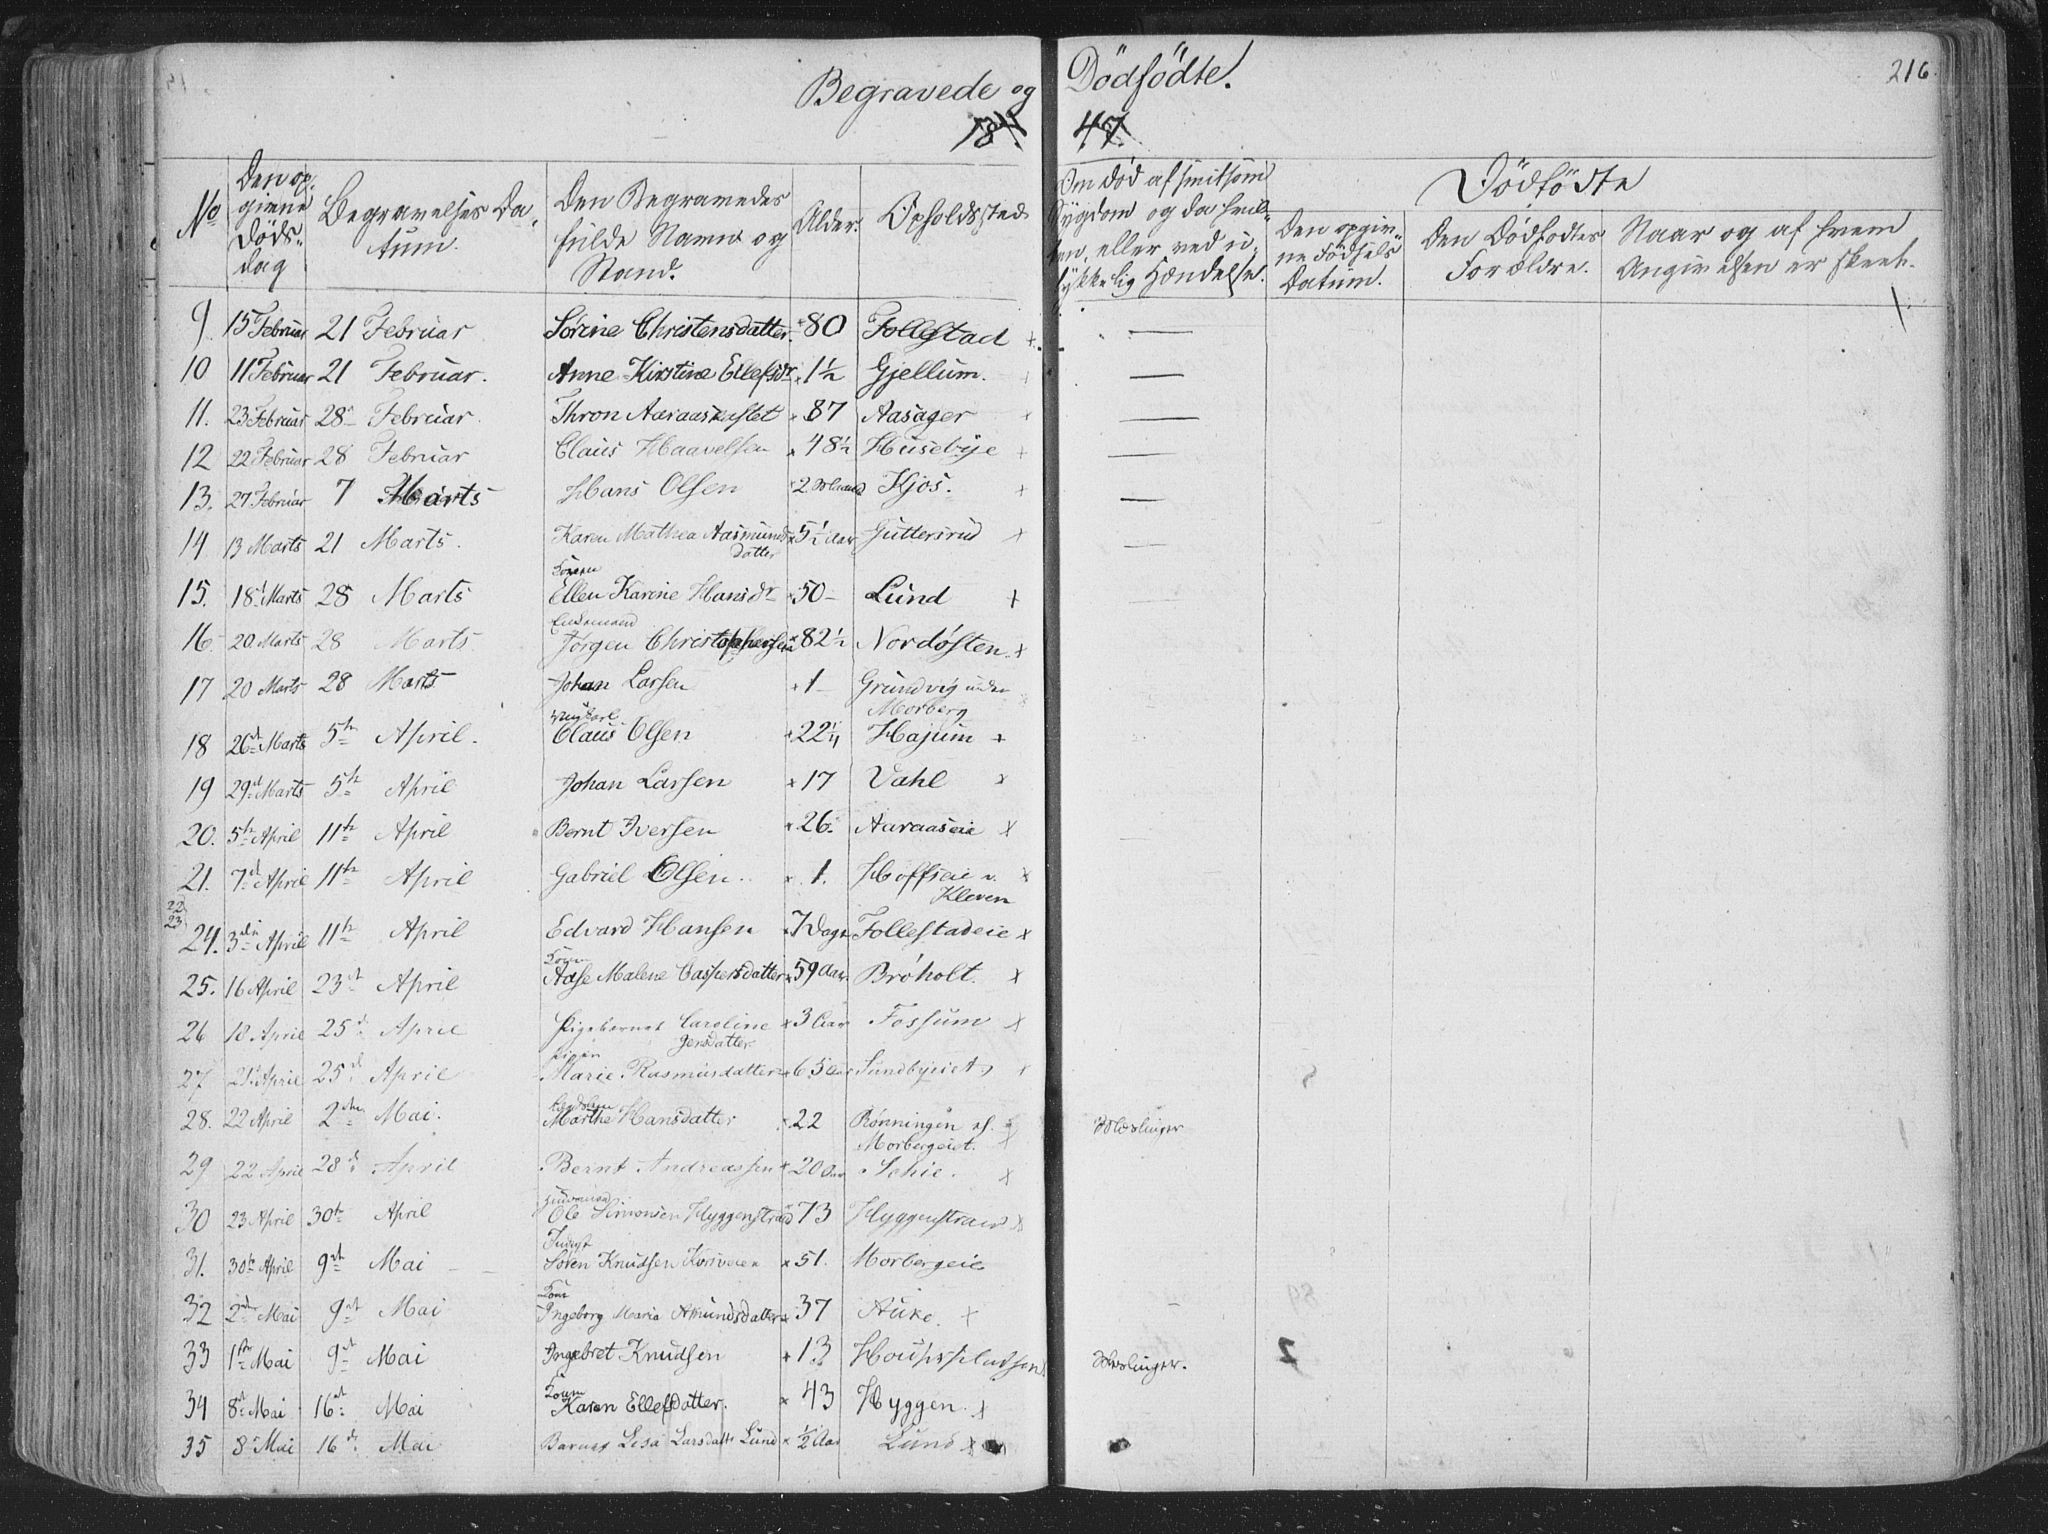 Begravede og Dödfödte.
216.
1847.
No
Den opgivne Döds-dag
Begravelses Datum.
Den Begravedes fulde Navn og Stand.
Alder.
Opholdssted
Om död af smitsom Sygdom og da hvilken, eller ved ulykkelig Hændelse.
Dödfödte
Den opgivne Födsels Datum.
Den Dödfödtes Forældre.
Naar og af hvem Angivelsen er skeet.
9. 15 Februar 21 Februar Sörine Christensdatter. 80 Follestad
10 11 Februar 21 Februar. Anne Kirstine Ellefsdr 1½ Gjellum.
11. 23 Februar 28 Februar Thron Aaraas 87 Aasager
12 22 Februar 28 Februar Claus Haavelsen 48½ Husebye
13. 27 Februar 7 Marts Hans Olsen 2 Kjos.
14 13 Marts 21 Marts. Karen Mathea Aasmundsdatter 5½ Aar Guttersrud
15. 18 Marts 28 Marts Konen Ellen Karine Hansdr 50 Lund
16 20 Marts 28 Marts. Enkemand Jörgen Christophersen 82½ Nordösten
17 20 Marts 28 Marts Johan Larsen 1 Grundvig under Morberg
18 26d Marts 5te April. Ungkarl Claus Olsen 22¼ Hajum
19 29d Marts 5te April Johan Larsen 17 Vahl
20. 5te April 11te April Bernt Iversen 26. Aaraaseie
21. 7d April 11te April Gabriel Olsen 1. Höffseie v. Kleven
22
23
24. 3die April 11te April Edvard Hansen 7 Dage Follestadeie
25. 16 April 23d April Konen Aase Malene Caspersdatter 59 Aar. Bröholt.
26 18 April 25d April Pigebarnet Caroline 3 Aar Fossum
27 21 April 25d April Pigen Marie Rasmusdatter 65 Aar Sundbyeiet
28. 22 April 2den Mai. Marthe Hansdatter 22 Rönningen af Morbergeiet. Mæslinger
29 22 April 28d April Bernt Andreassen 20 Aar
30 23 April 30te April Ole Simonsen Hyggenstrand 73 Hyggenstrand
31. 30te April 9d Mai Sören Knudsen 51. Morbergeie
32 2den Mai 9d Mai Kone Ingeborg Maria Amundsdatter 37 Auke.
33 1ste Mai 9d Mai Ingebret Knudsen 13 Mæslinger.
34 8d Mai 16d Mai Konen Karen Ellefsdatter. 43 Hyggen.
35 8 Mai 16d Mai Barnet Lisa Larsdatt Lund ½ Aar Lund